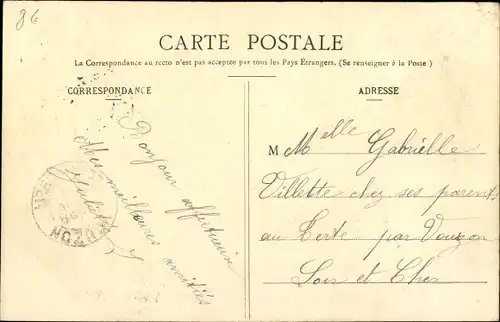 86
CARTE POSTALE
La Correspondance au recto n'est pas acceptée par tous les Pays Etrangers. (Se renseigner à la Poste)
CORRESPONDANCE
ADRESSE
Bonjour affectueux
Mes meilleures amitiés
Juliette
M Melle Gabrielle
Villette chez ses parents
au Tertre par Vouzon
Loir et Cher
VOUZON